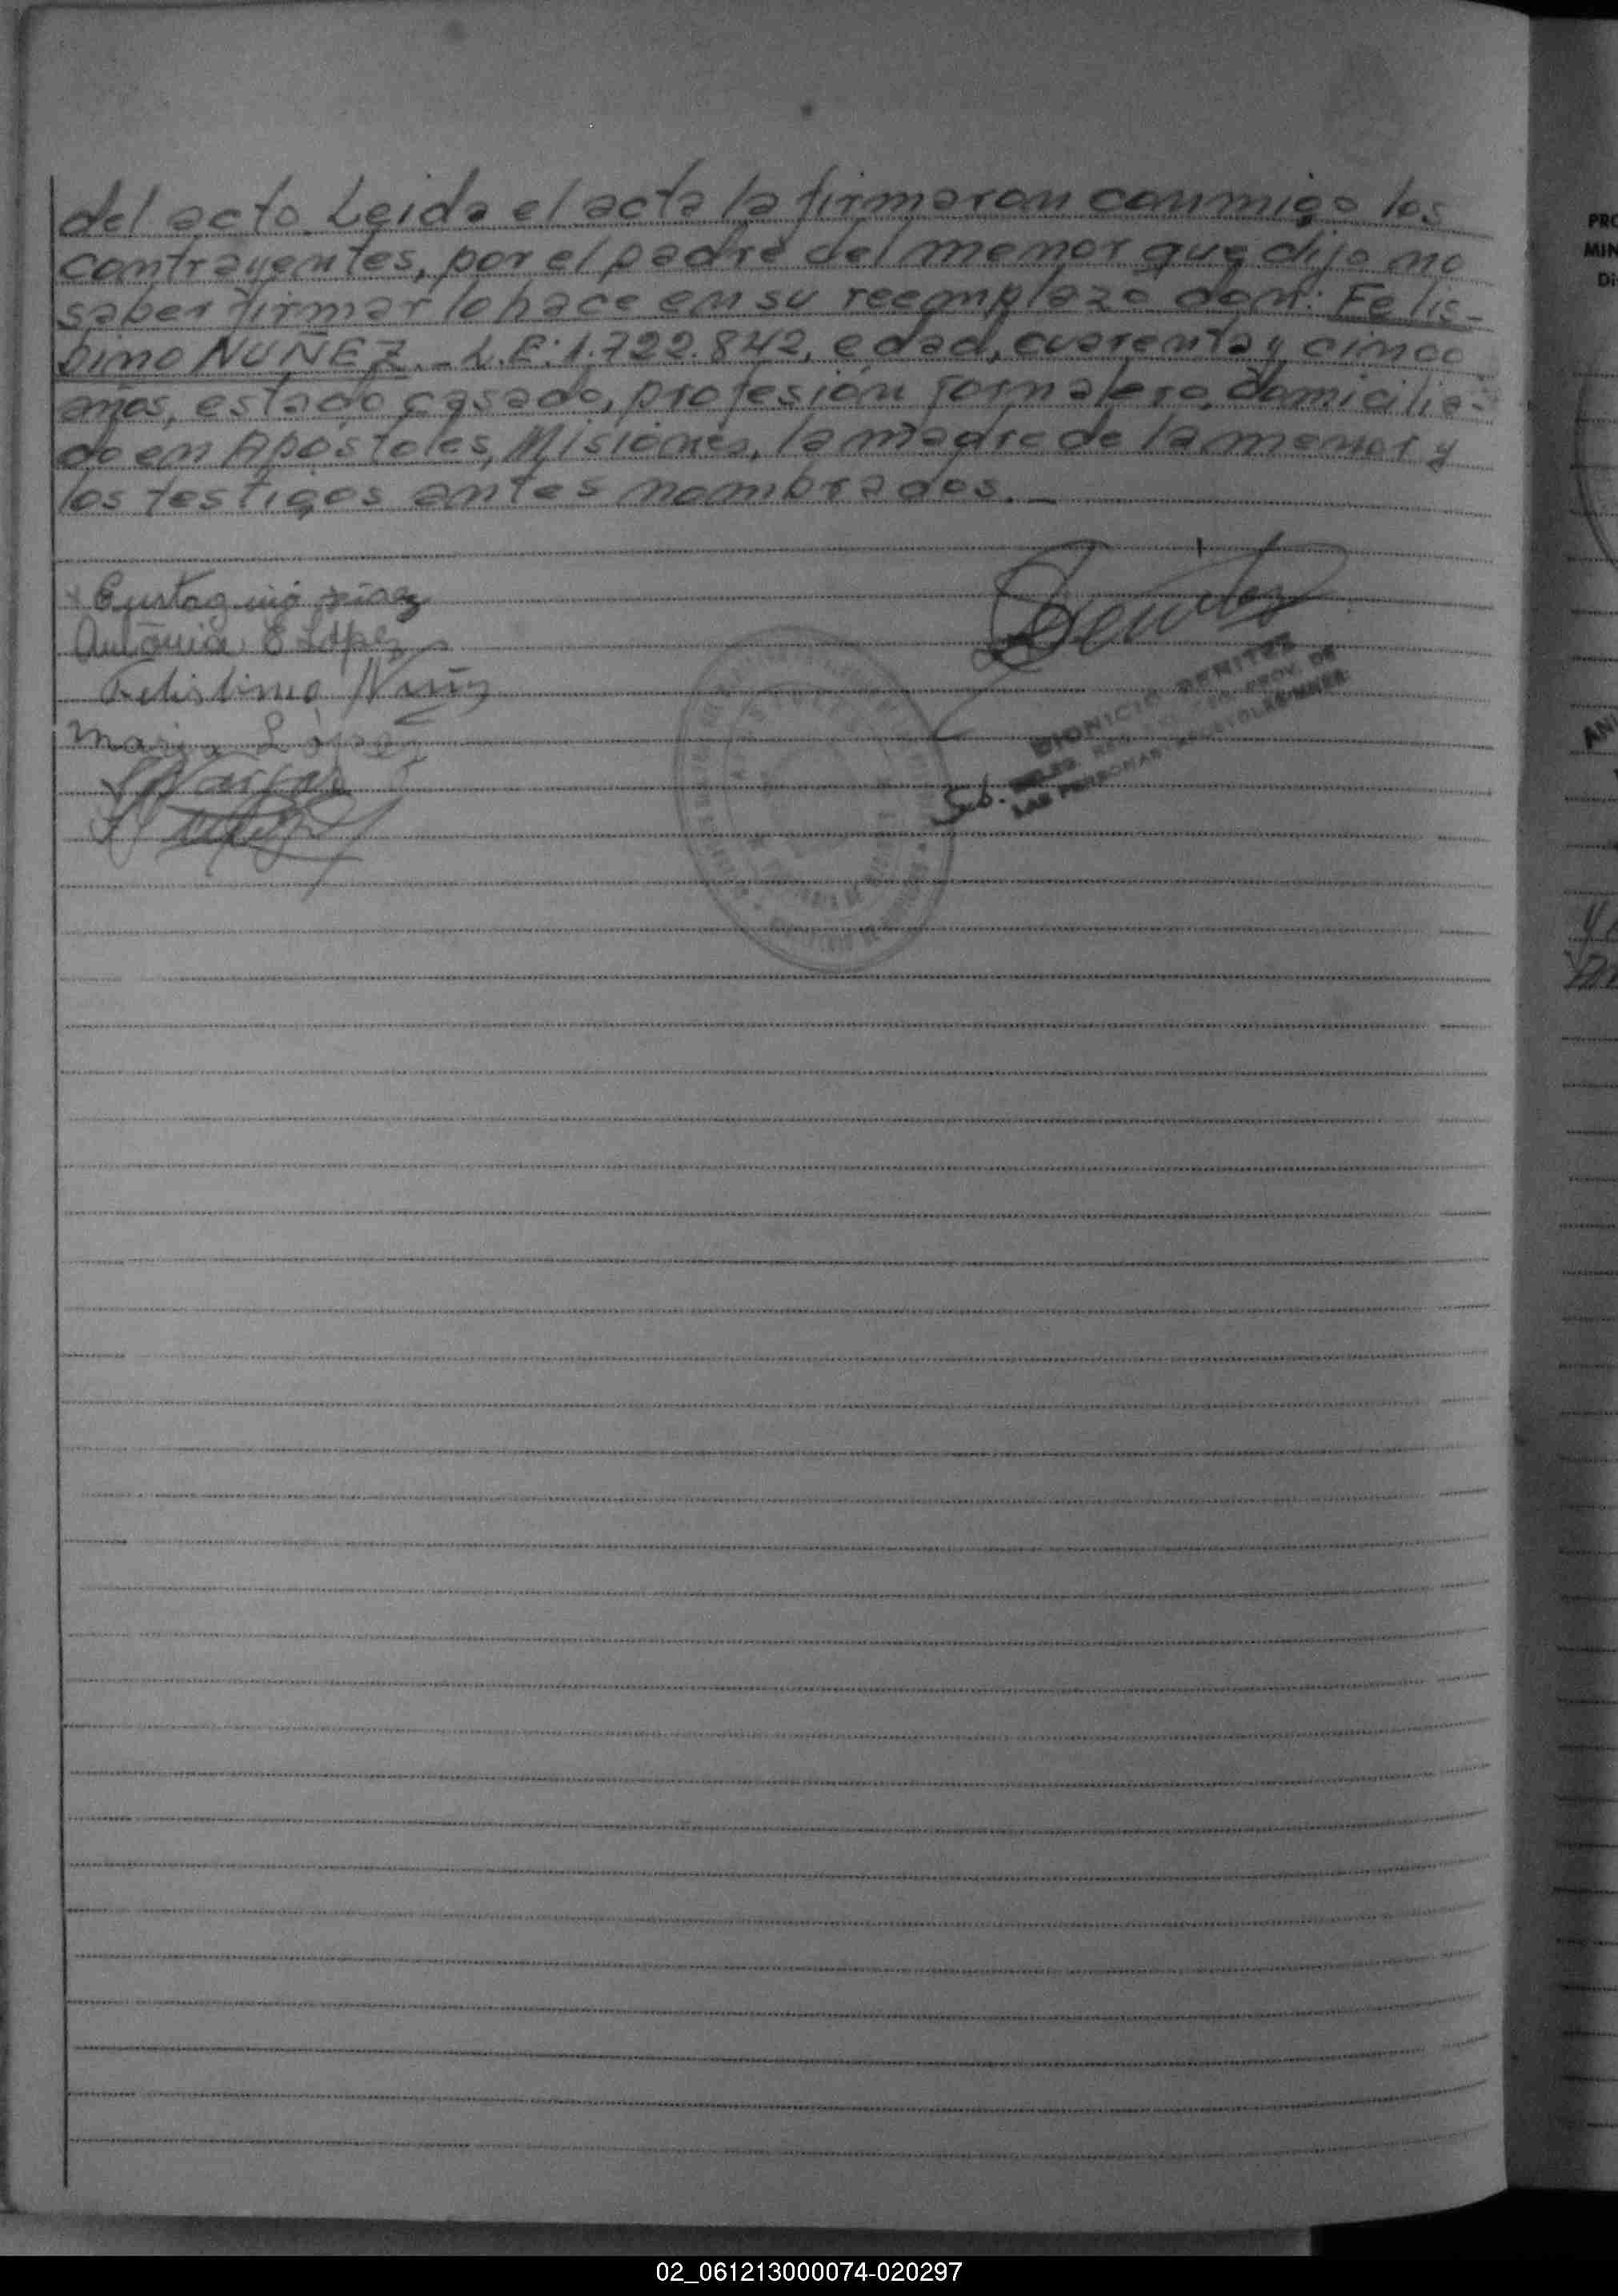 del acto. Leida el acta la firmaron conmigo los
contrayentes, por el padre del menor que dijo no
saber firmar lo hace en su reemplazo don: Felis-
bino NUÑEZ.- L.E: 1.722.842, edad, cuarenta y cinco
años, estado casado, profesión jornalero, domicilia-
do en Apóstoles, Misiones, la madre de la menor y
los testigos antes nombrados.-
Antonia E López
Nuñez
Maria López
Benitez
DIONICIO BENITEZ
PROV. DE
Sub.
LAS PERSONAS
PRO
MIN
Di
AN
02_061213000074-020297